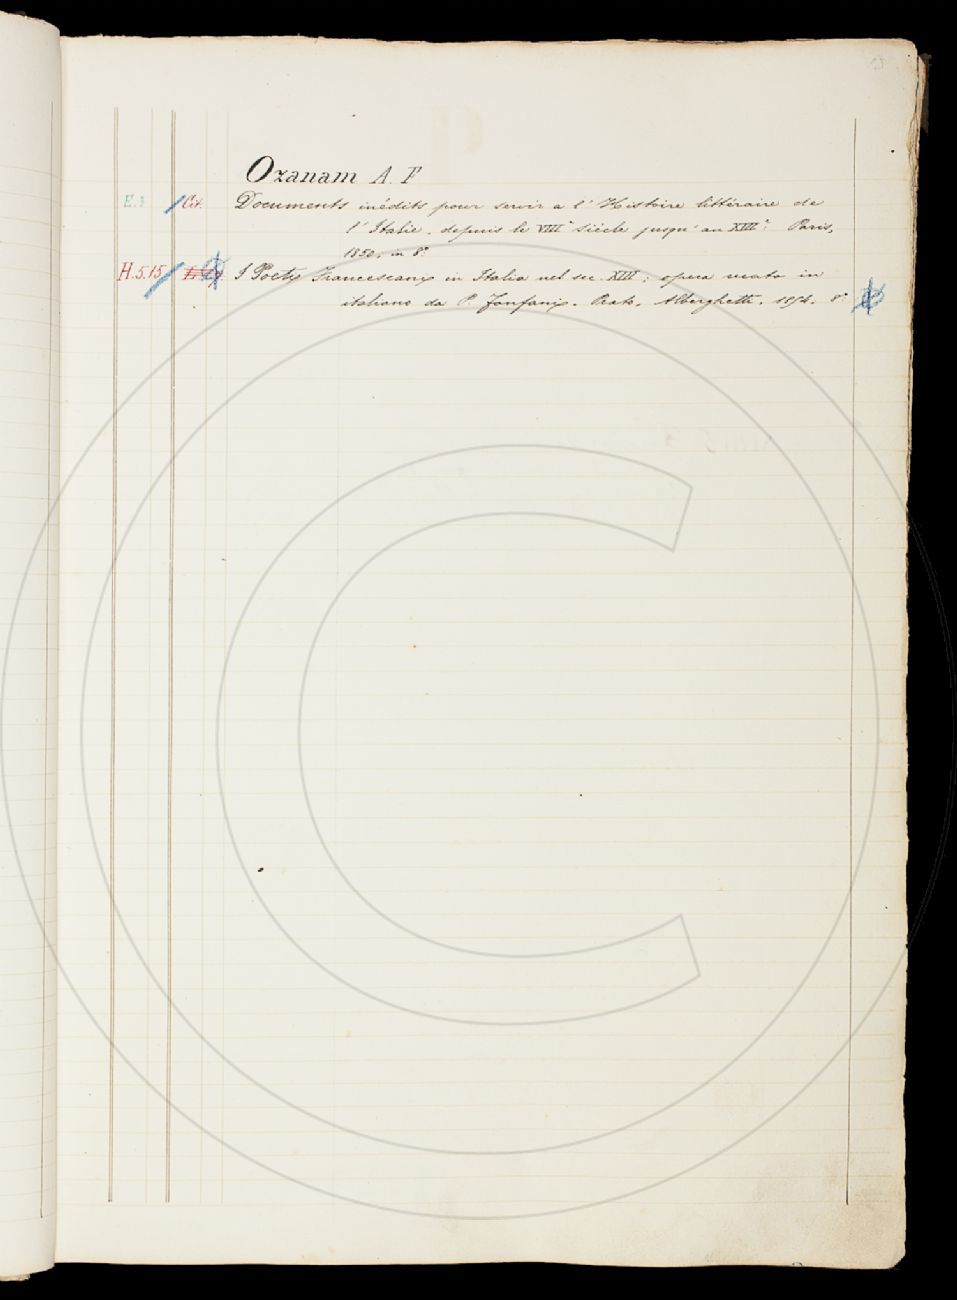 Ozanam A. F
E. Documents inédits pour servir a l'Histoire littéraire de
l'Italie, depuis le VIIIe siècle jusqu'au XIIIe. Paris,
1850, in 8°
H.5.15 I Poeti Francescani in Italia nel sec. XIII; opera recata in
italiano da P. Fanfani. Prato, Alberghetti, 1854. 8°